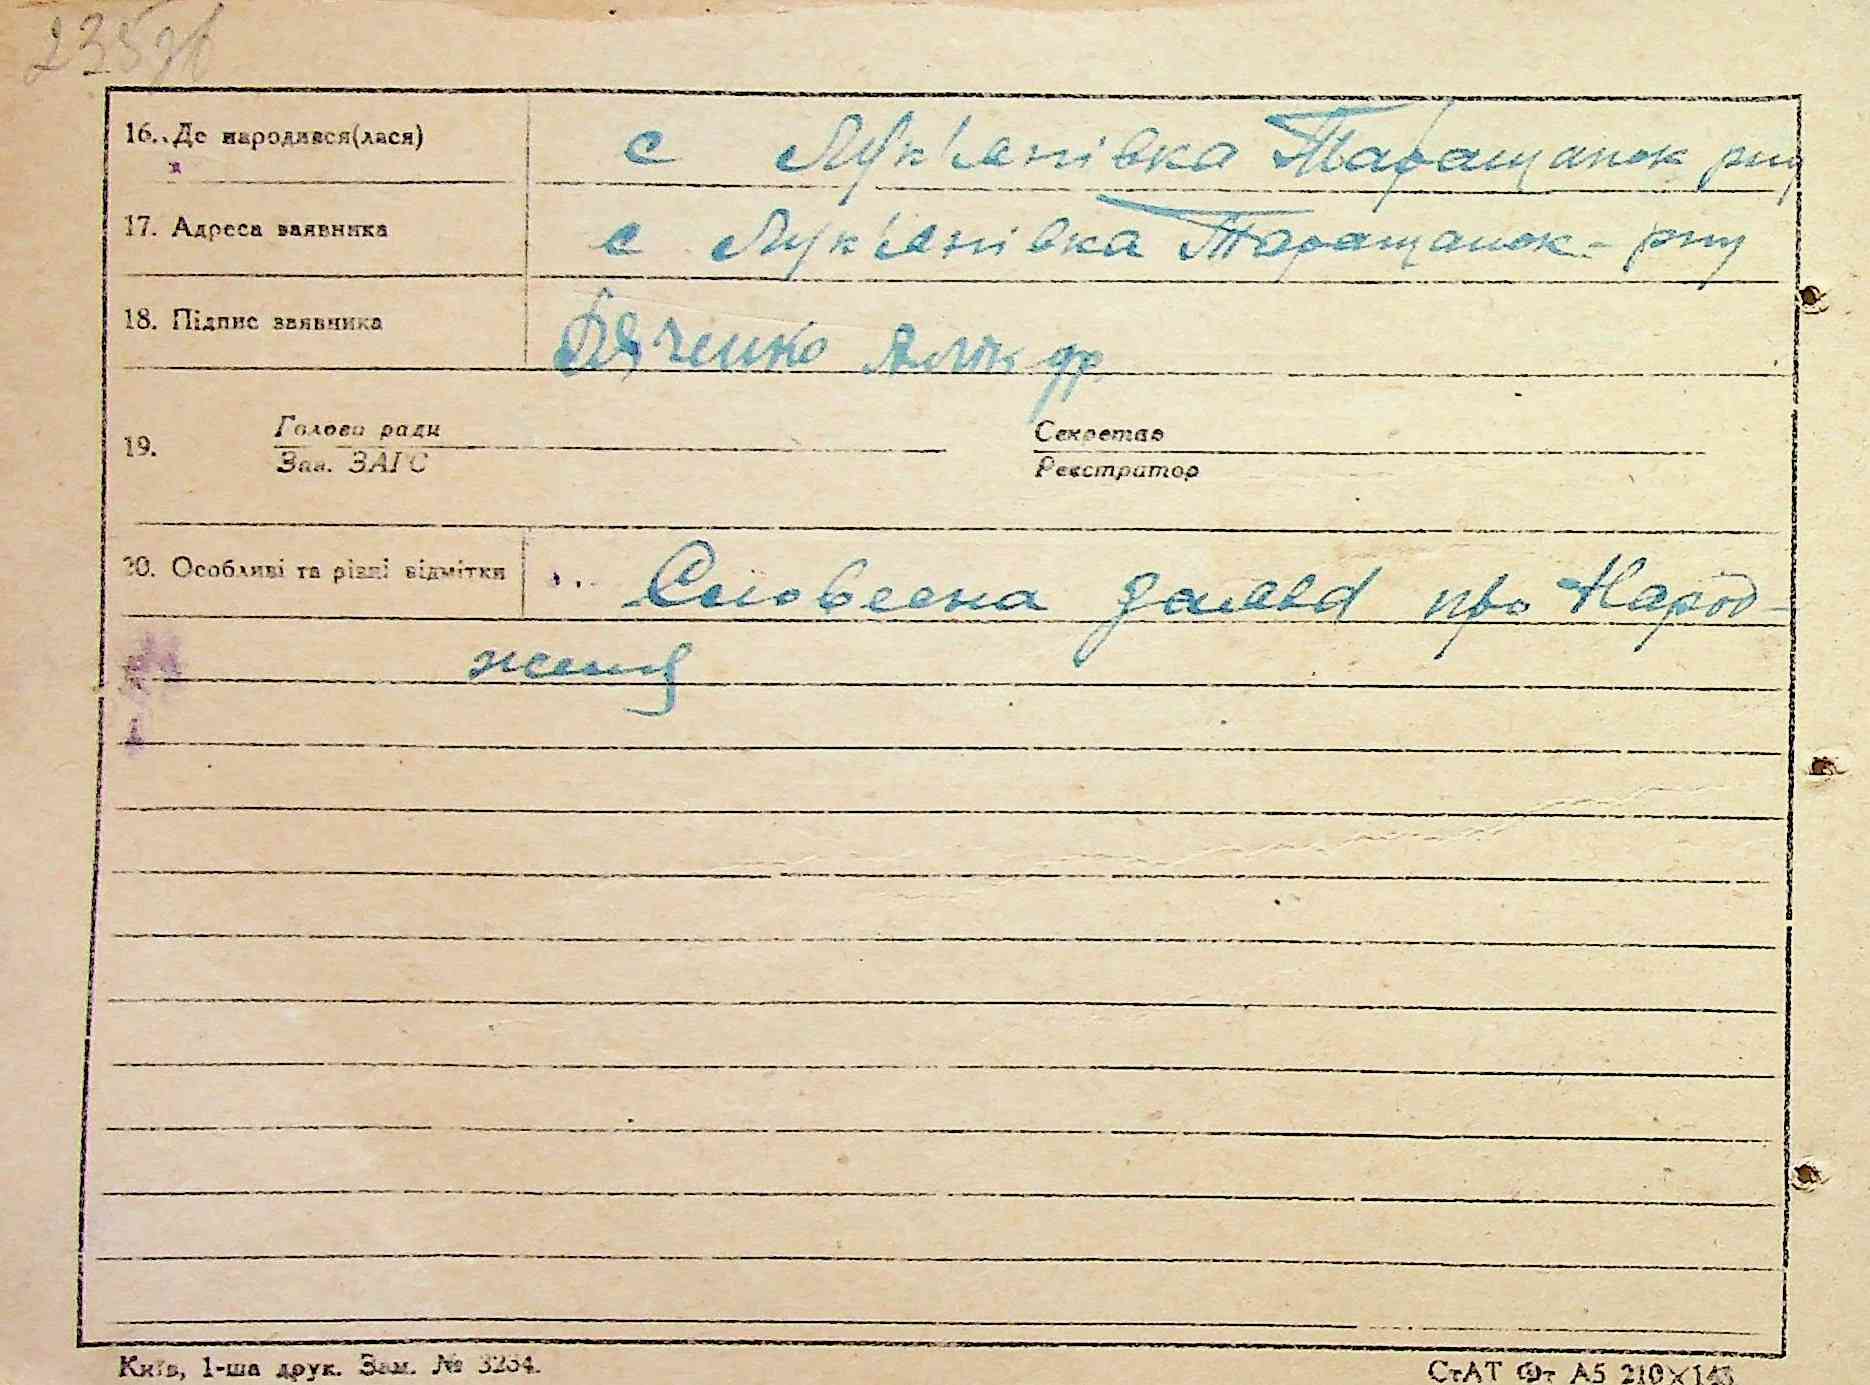 235зв
16. Де народився(лася) с Лук'янівка Таращанськ р-ну
17. Адреса заявника с Лук'янівка Таращанськ-р-ну
18. Підпис заявника Дяченко
19. Голова ради Секретар
Зав. ЗАГС Реєстратор
20. Особливі та різні відмітки Словесна заява про Народ-
ження
Київ, 1-ша друк. Зам. № 3234.
СтАТ Фт А5 210×148